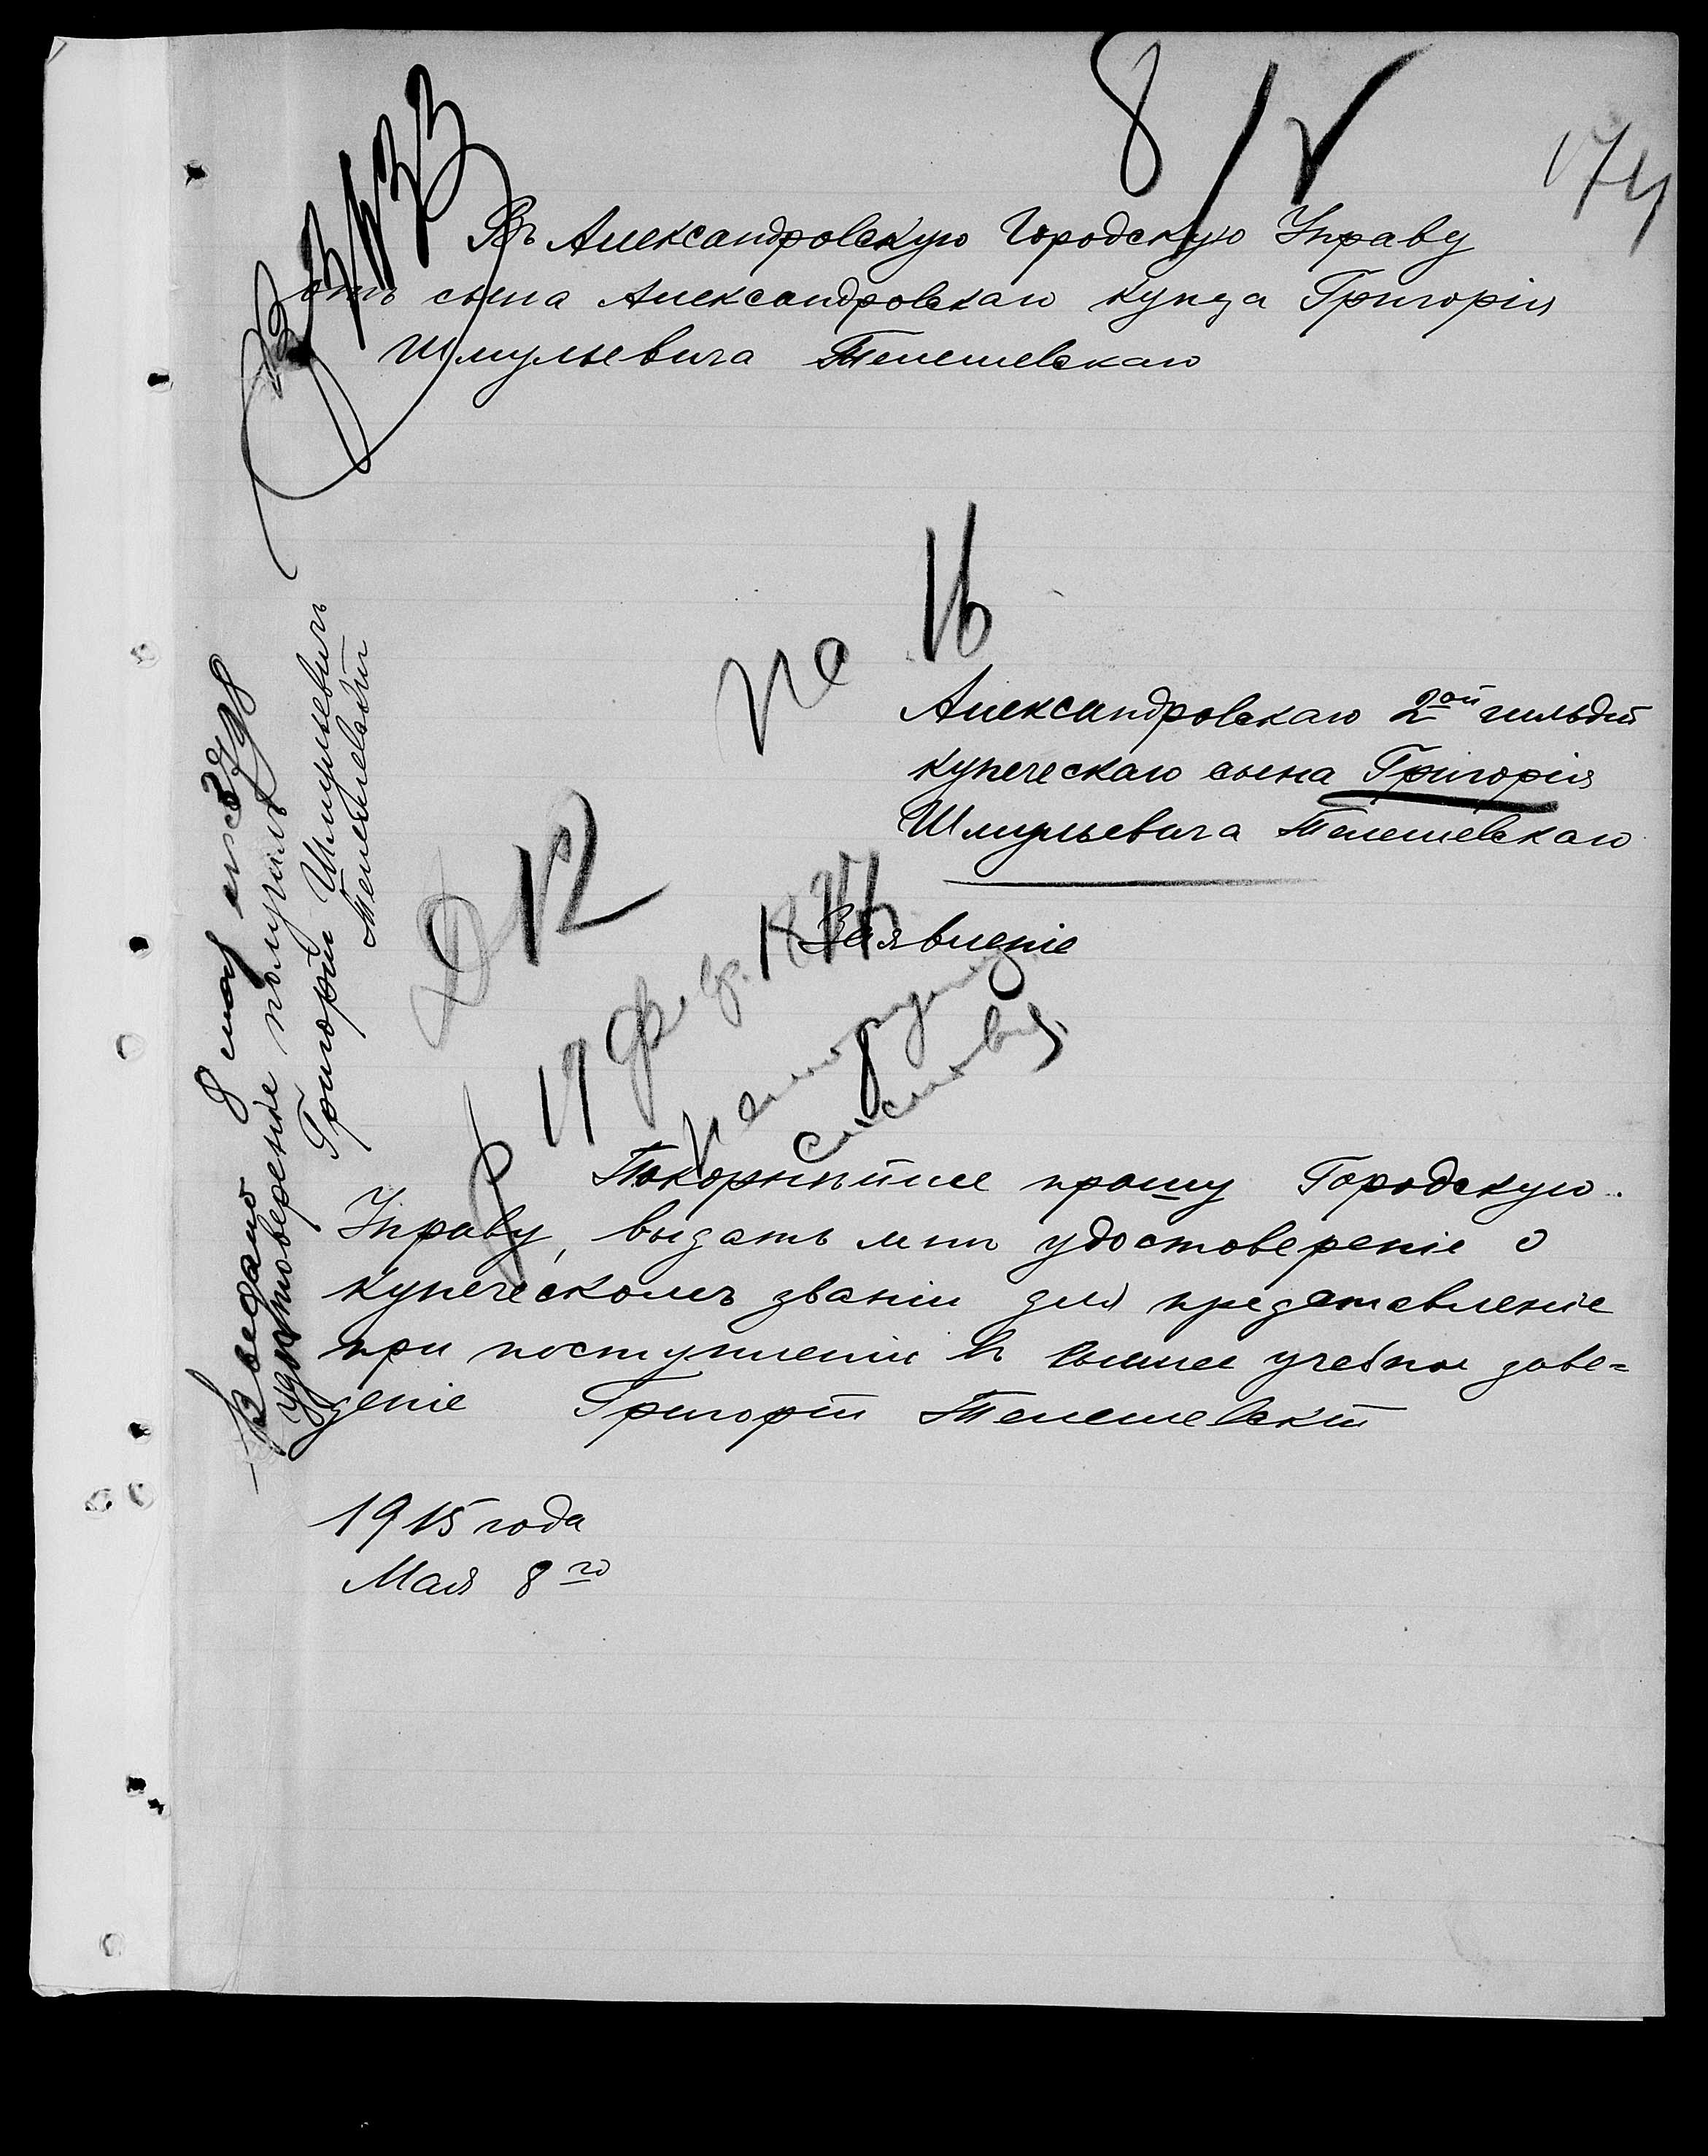 8/V
174
Въ Александровскую Городскую Управу
отъ сына Александровскаго купца Григорія
Шмульевича Телешевскаго
на 16
Александровскаго 2ой гильдіи
купеческаго сына Григорія
Шмульевича Телешевскаго
Заявленіе
12
17 февр.
Покорнѣйше прошу Городскую
Управу, выдать мнѣ удостовереніе о
купеческомъ званіи для представленіе
при поступленіи въ высшее учебное заве=
деніе Григорій Телешевскій
1915 года
Мая 8го
Выдано 8 мая
удостовереніе получилъ
Григорій Шмульевичъ
Телешевскій